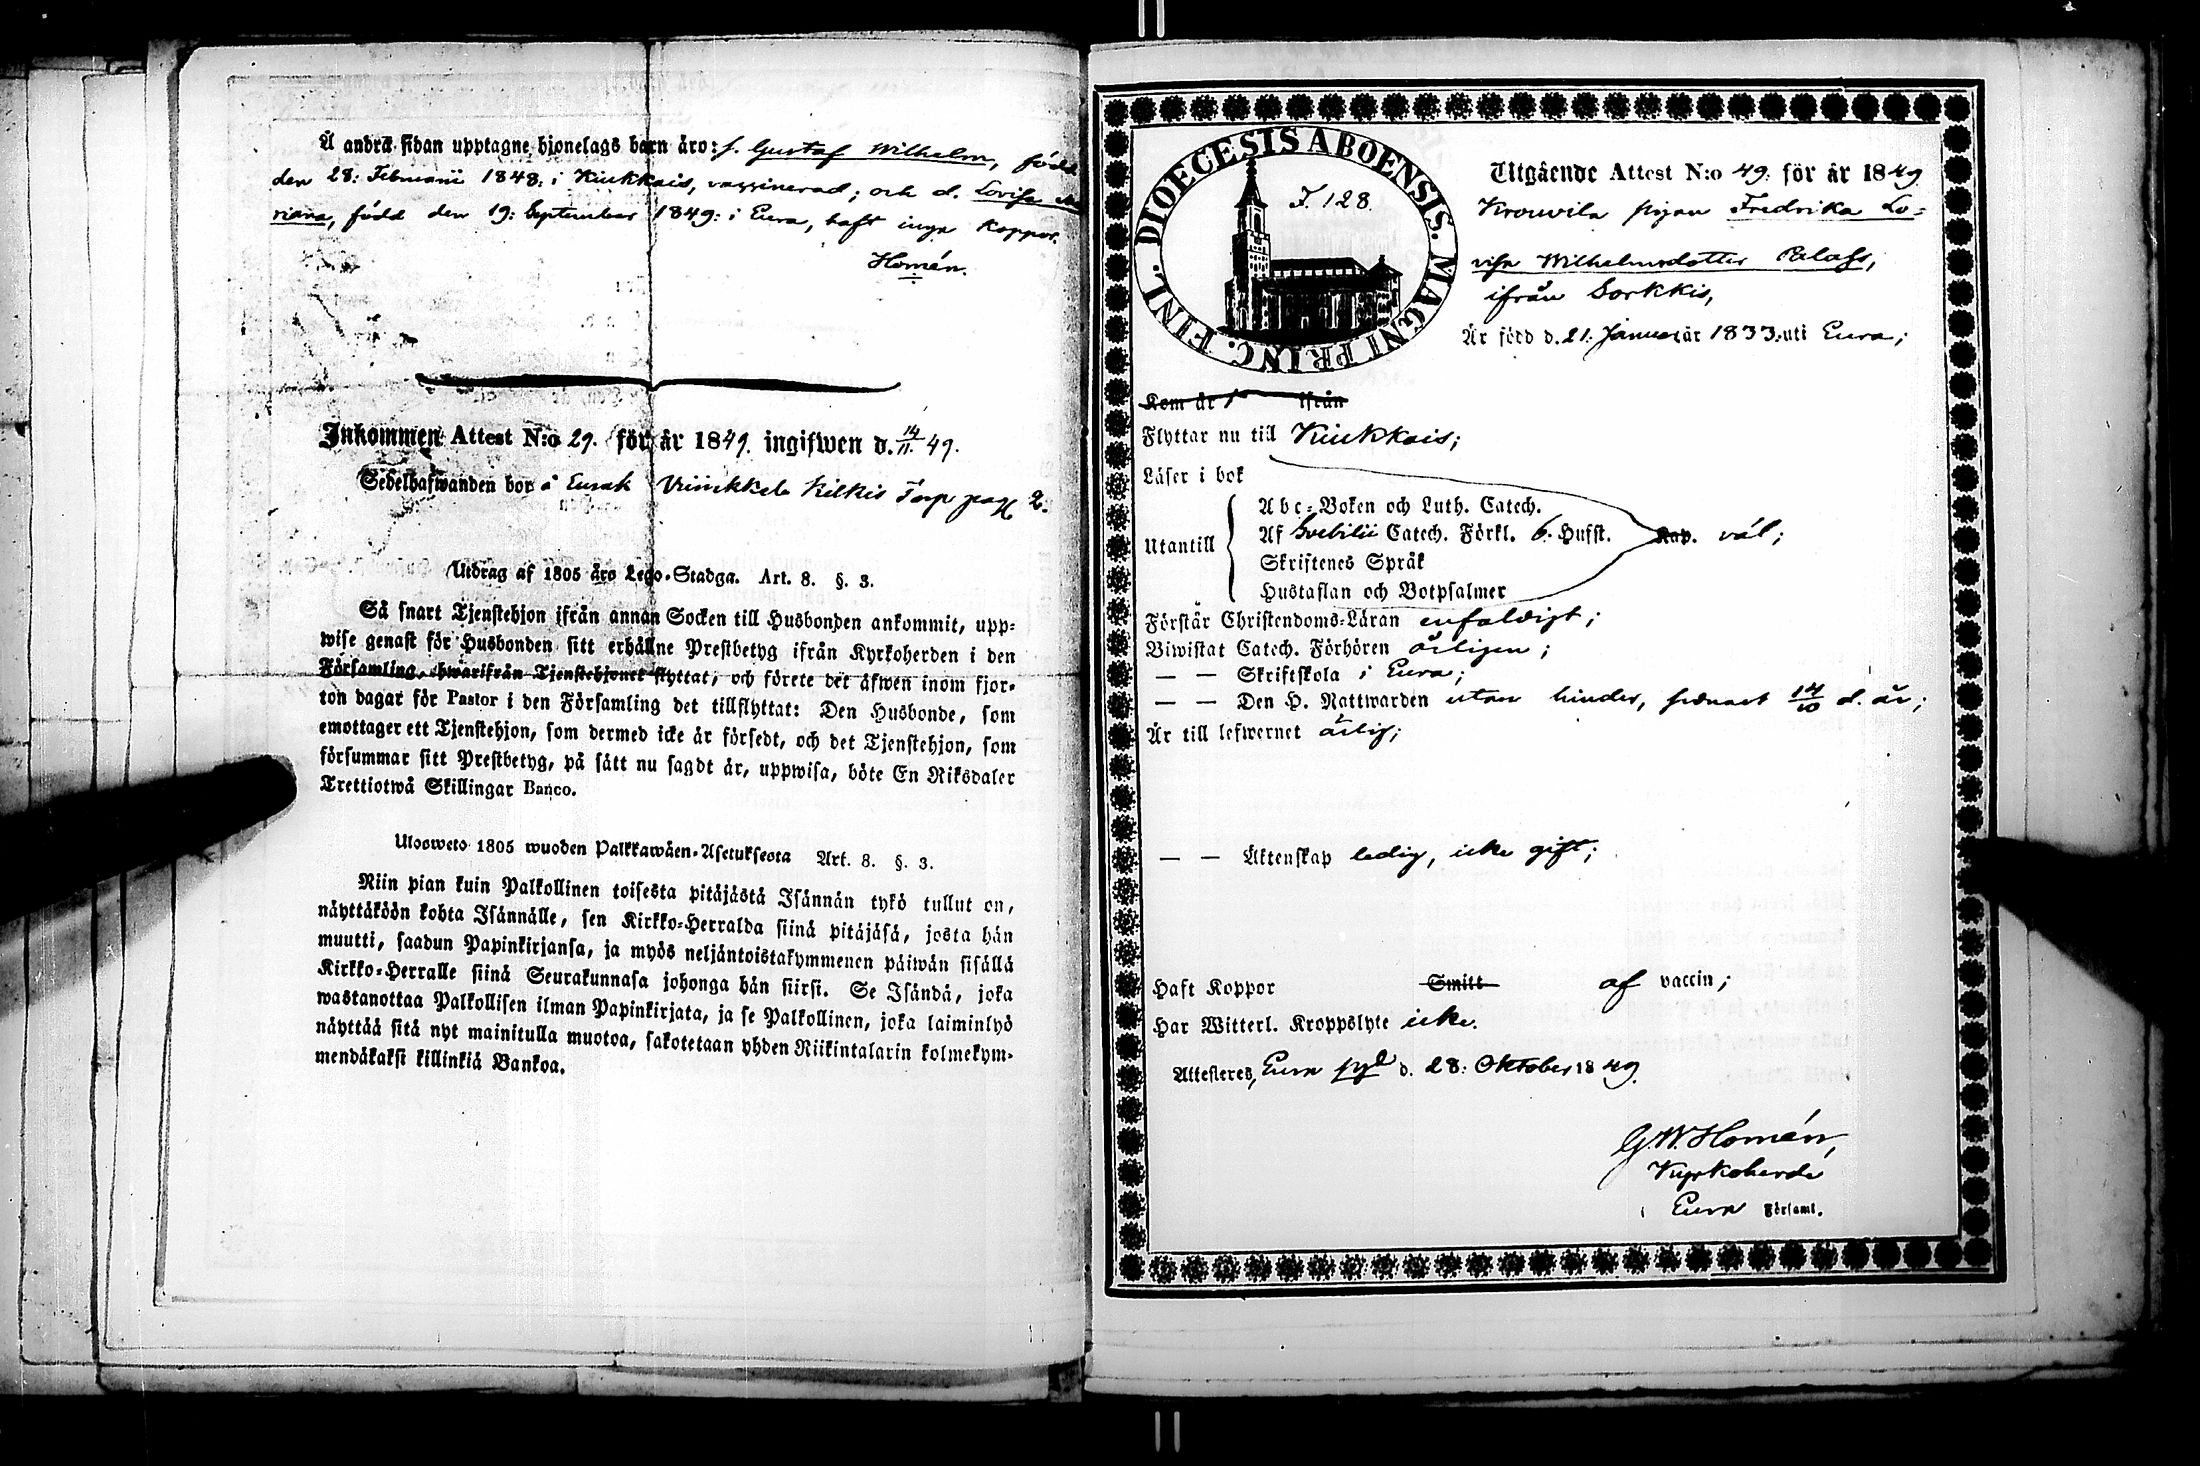 Å andra sidan upptagne hjonelags barn äro: s. Gustaf Wilhelm, född
den 28: Februarii 1848: i Kiukkais, vaccinerad; och d. Lovisa Ma
riana, född den 19: September 1849: i Eura, haft inga koppor.
Homén.
Inkommen Attest N:o 29. för år 1849. ingifwen d. 14/11. 49.
Sedelhafwanden bor å Kilkis Torp pag 2.
Utdrag af 1805 års Lego-Stadga. Art. 8. §. 3.
Så snart Tjenstehjon ifrån annan Socken till Husbonden ankommit, upp-
wise genast för Husbonden sitt erhållne Prestbetyg ifrån Kyrkoherden i den
Församling, ehwarifrån Tjenstehjonet flyttat, och förete det äfwen inom fjor-
ton dagar för Pastor i den Församling det tillflyttat: Den Husbonde, som
emottager ett Tjenstehjon, som dermed icke är försedt, och det Tjenstehjon, som
försummar sitt Prestbetyg, på sätt nu sagdt är, uppwisa, böte En Riksdaler
Trettiotwå Skillingar Banco.
Ulosweto 1805 wuoden Palkkawäen-Asetuksesta Art. 8. §. 3.
Niin pian kuin Palkollinen toisesta pitäjästä Isännän tykö tullut on,
näyttäköön kohta Isännälle, sen Kirkko-Herralda siinä pitäjäsä, josta hän
muutti, saadun Papinkirjansa, ja myös neljäntoistakymmenen päiwän sisällä
Kirkko-Herralle siinä Seurakunnasa johonga hän siirsi. Se Isändä, joka
wastanottaa Palkollisen ilman Papinkirjata, ja se Palkollinen, joka laiminlyö
näyttää sitä nyt mainitulla muotoa, sakotetaan yhden Riikintalarin kolmekym-
mendäkaksi killinkiä Bankoa.
DIOECESIS ABOENSIS. MAGNI PRINC. FINL.
F. 128.
Utgående Attest N:o 49. för år 1849
Krouvila pigan Fredrika Lo-
visa Wilhelmsdotter Palass,
ifrån Sorkkis,
Är född d. 21. Januar år 1833. uti Eura;
Kom år 1 ifrån
Flyttar nu till Kiukkais;
Läser i bok
Abc-Boken och Luth. Catech.
Utantill Af Svebilii Catech. Förkl. 6. Hufst. Kap. väl;
Skriftenes Språk
Hustaflan och Botpsalmer
Förstår Christendoms-Läran enfaldigt;
Biwistat Catech. Förhören årligen;
— — Skriftskola i Eura;
— — Den H. Nattwarden utan hinder, senast 14/10 d. år;
Är till lefwernet ärlig;
— — Äktenskap ledig, icke gift;
Haft Koppor Smitt af vaccin;
Har Witterl. Kroppslyte icke.
Attesteres, Eura d. 28: Oktober 1849.
G. W. Homén,
Kyrkoherde
i Eura Församl.